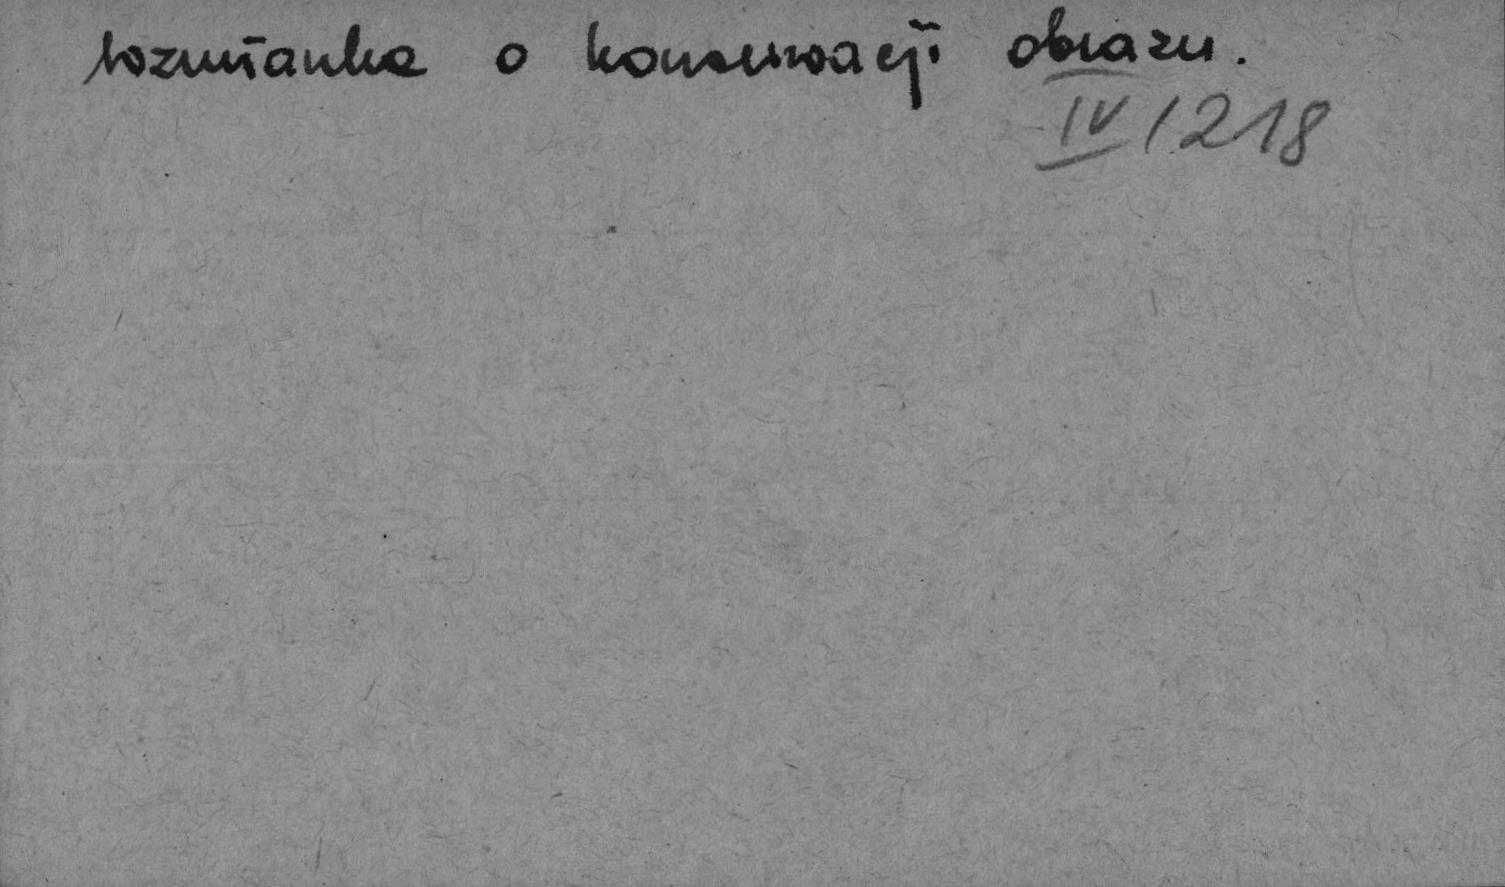 wzmianka o konserwacji obrazu.
IV/218